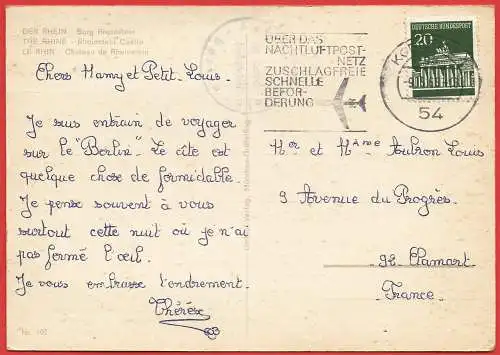 DER RHEIN - Burg Rheinstein
THE RHINE - Rheinstein Castle
LE RHIN - Château de Rheinstein
Chers Mamy et Petit Louis.
Je suis entrain de voyager
sur le "Berlin". Le site est
quelque chose de formidable.
Je pense souvent à vous
surtout cette nuit où je n'ai
pas fermé l'œil.
Je vous embrasse tendrement.
Thérèse
ÜBER DAS
NACHTLUFTPOST-
NETZ
ZUSCHLAGFREIE
SCHNELLE
BEFÖR-
DERUNG
20
DEUTSCHE BUNDESPOST
54
Mr et Mme Aubron Louis
9 Avenue du Progrès.
92 Clamart
France.